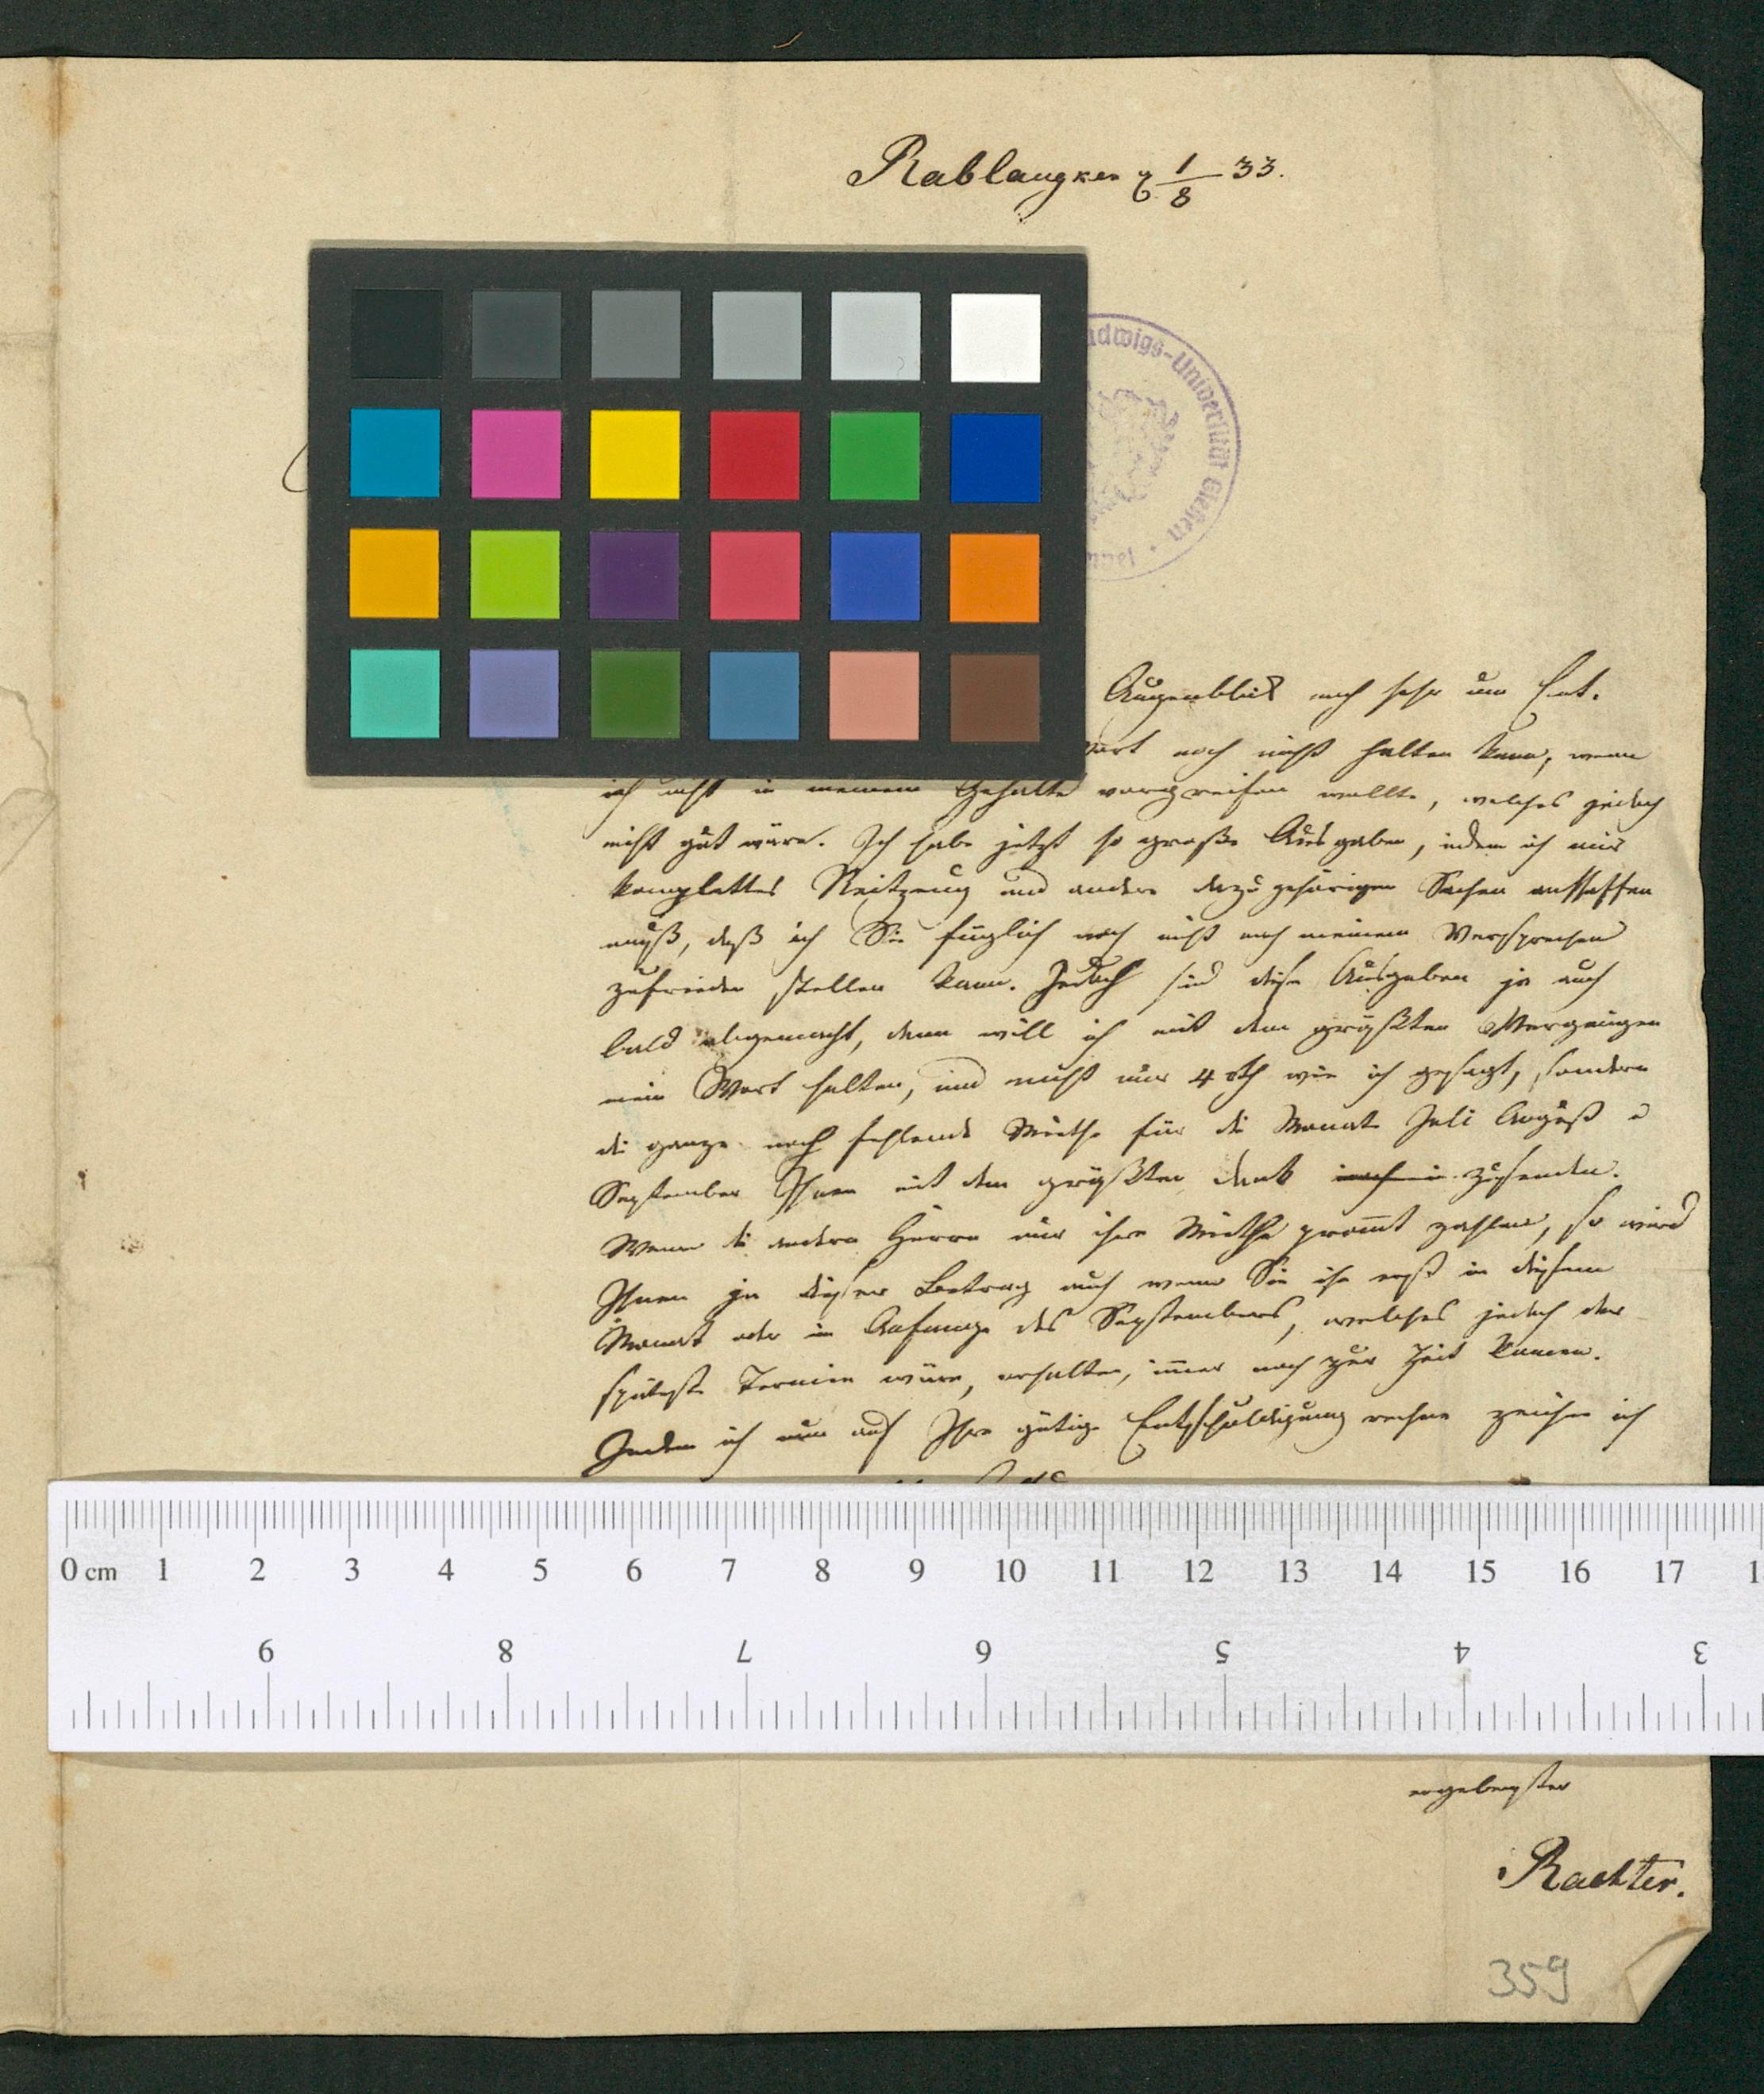 Rablaugken d 1/8 33.
adwigs-Universität Gießen
Augenblick noch sehr um Ent-
Wort noch nicht halten kann, wenn
ich nicht in meinem Gehalte vorgreifen wollte, welches jedoch
nicht gut wäre. Ich habe jetzt so große Ausgaben, indem ich mir
komplettes Reitzeug und andere dazu gehörigen Sachen anschaffen
muß, daß ich Sie füglich noch nicht nach meinem Versprechen
zufrieden stellen kann. Jedoch sind diese Ausgaben ja auch
bald abgemacht, dann will ich mit dem größten Vergnügen
mein Wort halten, und nicht nur 4 rth wie ich gesagt, sondern
die ganze noch fehlende Miethe für die Monate Juli August u
September Ihnen mit dem größten Dank zusenden.
Wenn die andern Herrn nur ihre Miethe promt zahlen, so wird
Ihnen ja dieser Betrag auch wenn Sie ihn erst in diesem
Monat oder im Anfange des Septembers, welches jedoch der
späteste Termin wäre, erhalten, immer noch zur Zeit kommen.
Indem ich nun auf Ihre gütige Entschuldigung rechne zeichne ich
0 cm 1 2 3 4 5 6 7 8 9 10 11 12 13 14 15 16 17 1
9 8 7 6 5 4 3
ergebenster
Raekter.
359